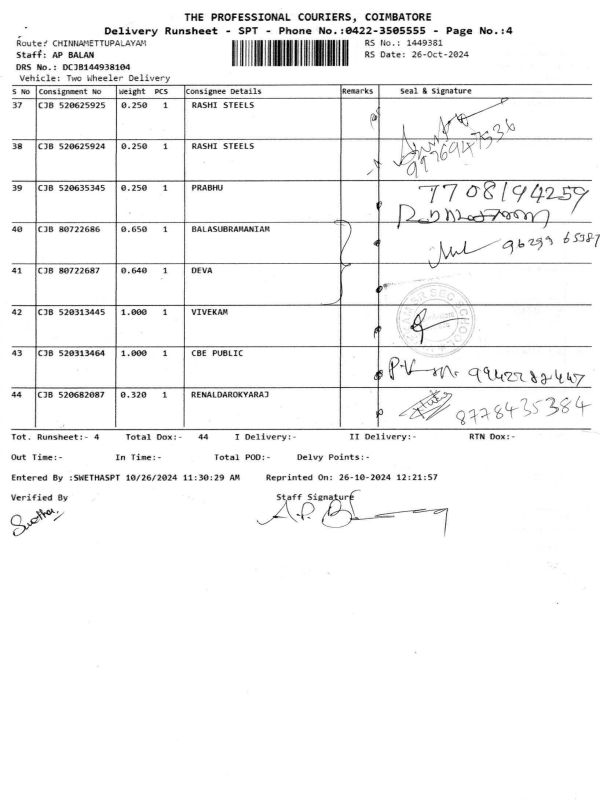 THE PROFESSIONAL COURIERS, COIMBATORE
Delivery Runsheet - SPT - Phone No.:0422-3505555 - Page No.:4
Route: CHINNAMETTUPALAYAM RS No.: 1449381
Staff: AP BALAN RS Date: 26-Oct-2024
DRS No.: DCJB144938104
Vehicle: Two Wheeler Delivery
S No Consignment No Weight PCS Consignee Details Remarks Seal & Signature
37 CJB 520625925 0.250 1 RASHI STEELS
9976947536
38 CJB 520625924 0.250 1 RASHI STEELS
39 CJB 520635345 0.250 1 PRABHU 7708194259
40 CJB 80722686 0.650 1 BALASUBRAMANIAM
96299 65387
41 CJB 80722687 0.640 1 DEVA
42 CJB 520313445 1.000 1 VIVEKAM
43 CJB 520313464 1.000 1 CBE PUBLIC
44 CJB 520682087 0.320 1 RENALDAROKYARAJ
8778435384
Tot. Runsheet:- 4 Total Dox:- 44 I Delivery:- II Delivery:- RTN Dox:-
Out Time:- In Time:- Total POD:- Delvy Points:-
Entered By :SWETHASPT 10/26/2024 11:30:29 AM Reprinted On: 26-10-2024 12:21:57
Verified By Staff Signature
Swetha. A.P. B